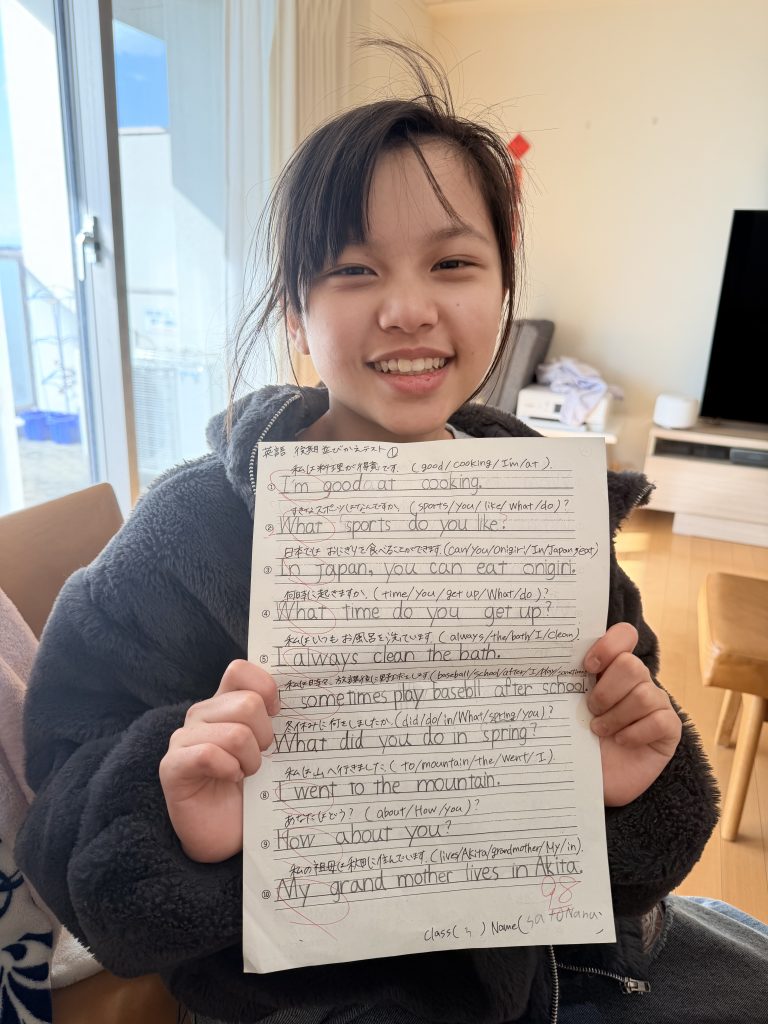 英語 後期 並びかえテスト ①
私は料理が得意です。 (good/cooking/I'm/at).
① I'm good at cooking.
すきなスポーツはなんですか。 (sports/you/like/what/do)?
② What sports do you like?
日本では おにぎりを食べることができます。(can/you/onigiri/In/Japan,/eat)
③ In Japan, you can eat onigiri.
何時に起きますか。 (time/you/get up/What/do)?
④ What time do you get up?
私はいつも お風呂を洗っています。(always/the/bath/I/clean).
⑤ I always clean the bath.
私は時々、放課後に野球をします (baseball/school/after/I/play/sometimes
sometimes play basebll after school.
冬休みに何をしましたか。(did/do/in/What/spring/you)?
What did you do in spring?
私は山へ行きました (to/mountain/the/went/I)
⑧ I went to the mountain.
あなたはどう? (about/How/you)?
⑨ How about you?
私の祖母は秋田に住んでいます。(lives/Akita/grandmother/My/in).
⑩ My grand mother lives in Akita.
98
Class( 5 ) Name( Sato Nana )